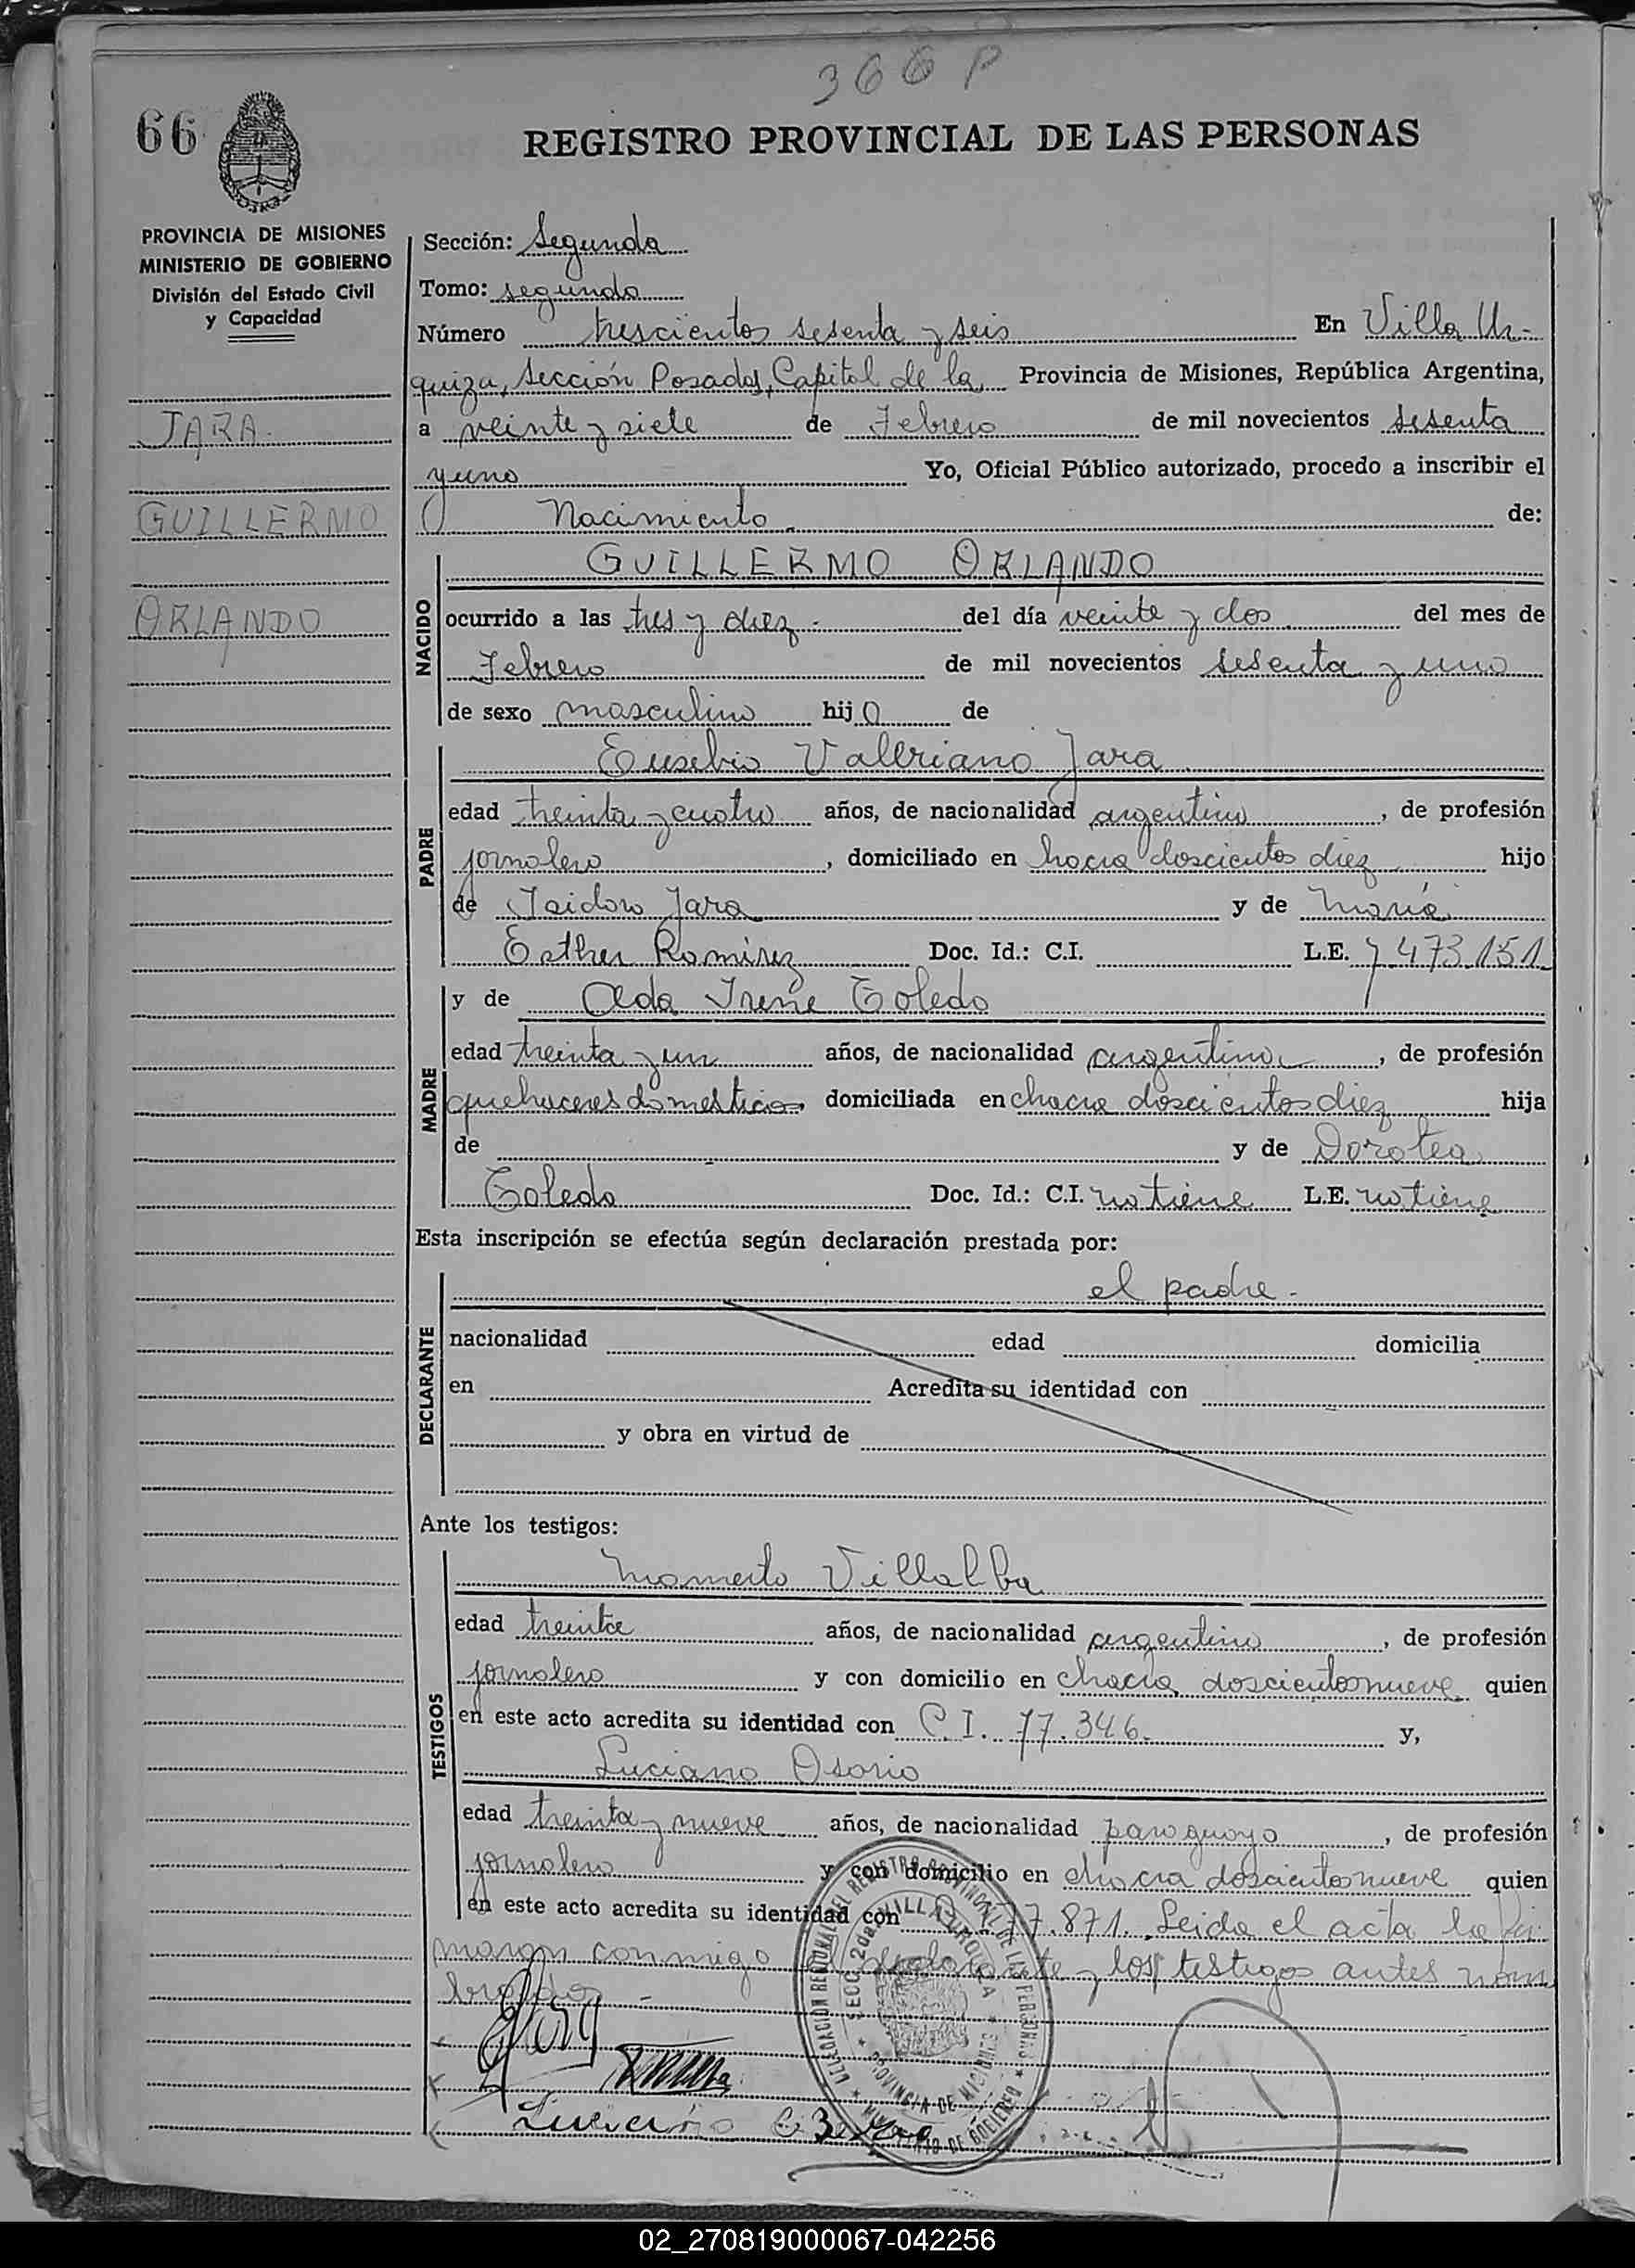 366 P
66
REGISTRO PROVINCIAL DE LAS PERSONAS
PROVINCIA DE MISIONES
MINISTERIO DE GOBIERNO
División del Estado Civil
y Capacidad
JARA
GUILLERMO
ORLANDO
Sección: Segunda
Tomo: segundo
Número trescientos sesenta y seis En Villa Ur-
quiza, Sección Posadas, Capital de la Provincia de Misiones, República Argentina,
a veinte y siete de Febrero de mil novecientos sesenta
y uno Yo, Oficial Público autorizado, procedo a inscribir el
Nacimiento de:
NACIDO
GUILLERMO ORLANDO
ocurrido a las tres y diez del día veinte y dos del mes de
Febrero de mil novecientos sesenta y uno
de sexo masculino hijo de
PADRE
Eusebio Valeriano Jara
edad treinta y cuatro años, de nacionalidad argentino, de profesión
jornalero, domiciliado en hacra doscientos diez hijo
de Isidoro Jara y de María
Esther Ramirez Doc. Id.: C.I. L.E. 7.473.151
MADRE
y de Alda Irene Toledo
edad treinta y un años, de nacionalidad argentina, de profesión
quehaceres domesticos, domiciliada en chacra doscientos diez hija
de y de Dorotea
Toledo Doc. Id.: C.I. no tiene L.E. no tiene
Esta inscripción se efectúa según declaración prestada por:
DECLARANTE
el padre.-
nacionalidad edad domicilia
en Acredita su identidad con
y obra en virtud de
Ante los testigos:
TESTIGOS
Mamerto Villalba
edad treinta años, de nacionalidad argentino, de profesión
jornalero y con domicilio en chacra doscientos nueve quien
en este acto acredita su identidad con C.I. 77.346. y,
Luciano Osorio
edad treinta y nueve años, de nacionalidad paraguayo, de profesión
jornalero y con domicilio en chacra doscientos nueve quien
en este acto acredita su identidad con 77.871. Leida el acta la fir
maron conmigo el declarante y los testigos antes nom
brados.-
DELEGACION REGIONAL DEL REGISTRO PROVINCIAL DE LAS PERSONAS
SECC. 2da. VILLA URQUIZA
PROVINCIA DE MISIONES
MINISTERIO DE GOBIERNO
Luciano
02_270819000067-042256